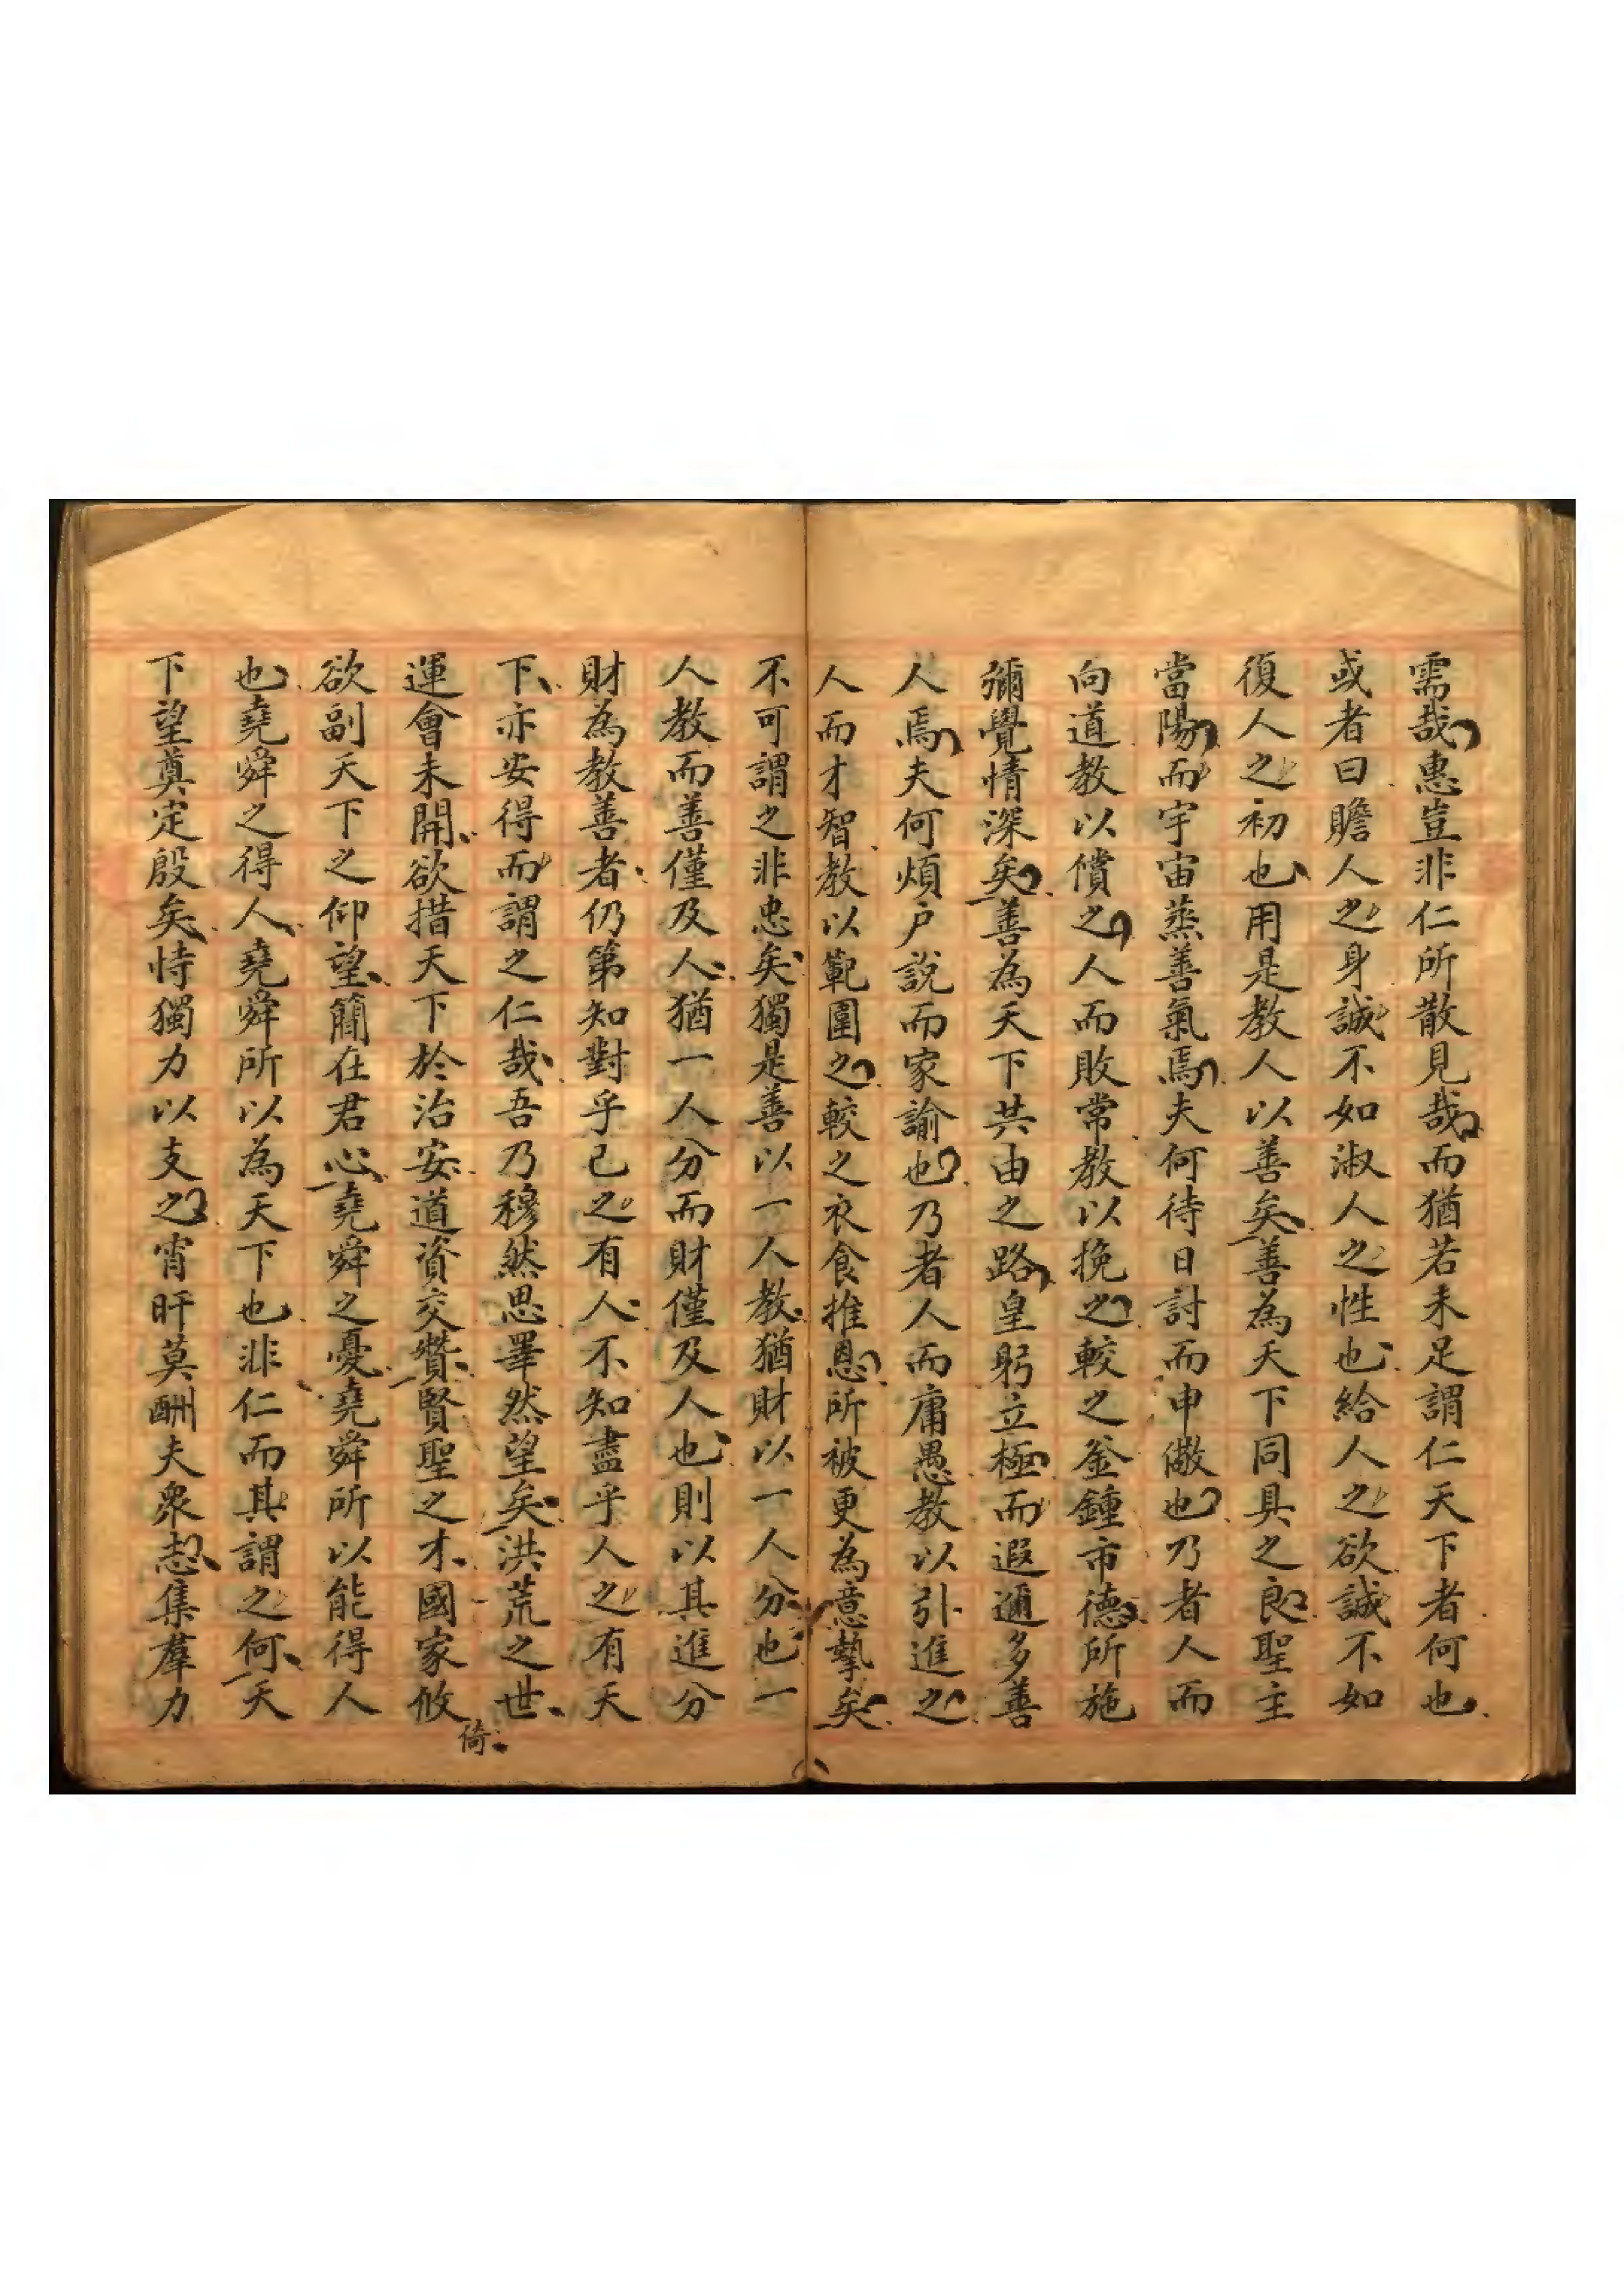 需哉惠豈非仁所散見哉而猶若未足謂仁天下者何也
或者曰贍人之身誠不如淑人之性也給人之欲誠不如
復人之初也用是教人以善矣善為天下同具之良聖主
當陽而宇宙蒸善氣焉夫何待日討而申儆也乃者人而
向道教以償之人而敗常教以挽之較之釜鍾市德所施
彌覺情深矣善為天下共由之路皇躬立極而遐邇多善
人焉夫何煩户說而家諭也乃者人而庸愚教以引進之
人而才智教以範圍之較之衣食推恩所被更為意摯矣
不可謂之非忠矣獨是善以一人教猶財以一人分也一
人教而善僅及人猶一人分而財僅及人也則以其進分
財為教善者仍第知對乎己之有人不知盡乎人之有天
下亦安得而謂之仁哉吾乃穆然思睪然望矣洪荒之世
運會未開欲措天下於治安道資交贊賢聖之才國家攸
倚
欲副天下之仰望簡在君心堯舜之憂堯舜所以能得人
也堯舜之得人堯舜所以為天下也非仁而其謂之何天
下望奠定殷矣恃獨力以支之宵旰莫酬夫衆恝集羣力